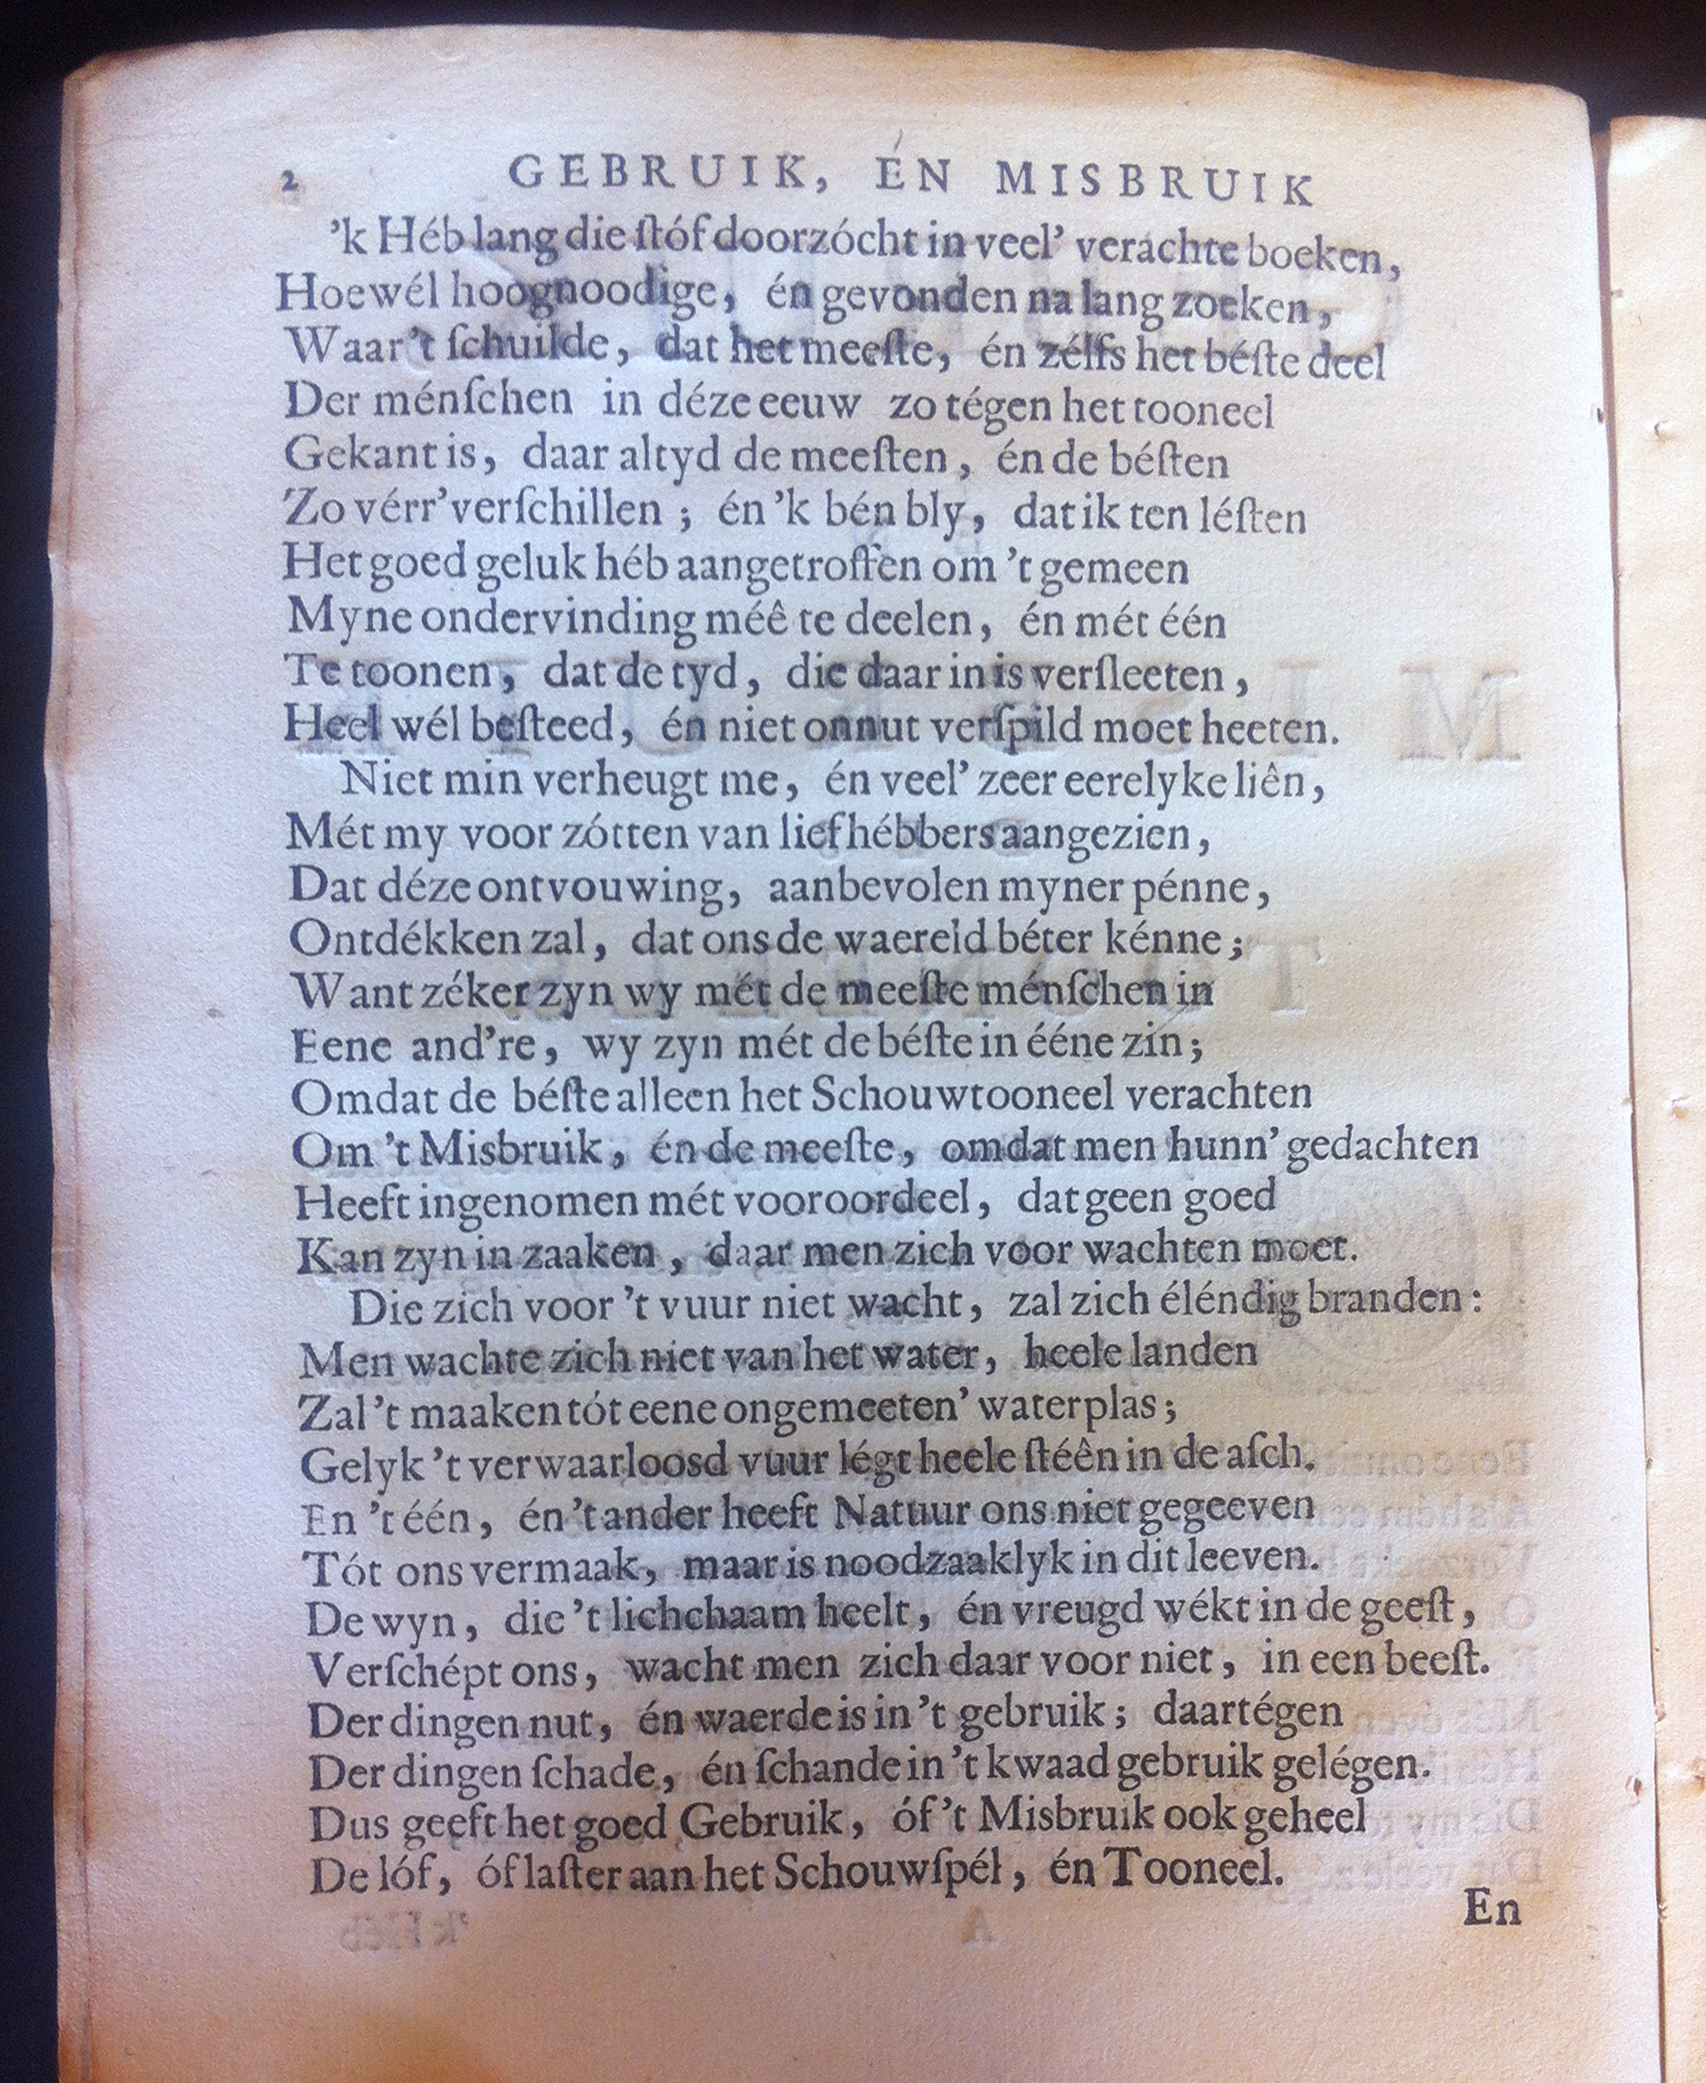 2 GEBRUIK, ÉN MISBRUIK
'k Héb lang die ſtóf doorzócht in veel' verachte boeken,
Hoewél hoognoodige, én gevonden na lang zoeken,
Waar 't ſchuilde, dat het meeſte, én zélfs het béſte deel
Der ménſchen in déze eeuw zo tégen het tooneel
Gekant is, daar altyd de meeſten, én de béſten
Zo vérr' verſchillen; én 'k bén bly, dat ik ten léſten
Het goed geluk héb aangetroffen om 't gemeen
Myne ondervinding méê te deelen, én mét één
Te toonen, dat de tyd, die daar in is verſleeten,
Heel wél beſteed, én niet onnut verſpild moet heeten.
Niet min verheugt me, én veel' zeer eerelyke liên,
Mét my voor zótten van liefhébbers aangezien,
Dat déze ontvouwing, aanbevolen myner pénne,
Ontdékken zal, dat ons de waereld béter kénne;
Want zéker zyn wy mét de meeſte ménſchen in
Eene and're, wy zyn mét de béſte in ééne zin;
Omdat de béſte alleen het Schouwtooneel verachten
Om 't Misbruik, én de meeſte, omdat men hunn' gedachten
Heeft ingenomen mét vooroordeel, dat geen goed
Kan zyn in zaaken, daar men zich voor wachten moet.
Die zich voor 't vuur niet wacht, zal zich éléndig branden:
Men wachte zich niet van het water, heele landen
Zal 't maaken tót eene ongemeeten' waterplas;
Gelyk 't verwaarloosd vuur légt heele ſtéên in de aſch.
En 't één, én 't ander heeft Natuur ons niet gegeeven
Tót ons vermaak, maar is noodzaaklyk in dit leeven.
De wyn, die 't lichchaam heelt, én vreugd wékt in de geeſt,
Verſchépt ons, wacht men zich daar voor niet, in een beeſt.
Der dingen nut, én waerde is in 't gebruik; daartégen
Der dingen ſchade, én ſchande in 't kwaad gebruik gelégen.
Dus geeft het goed Gebruik, óf 't Misbruik ook geheel
De lóf, óf laſter aan het Schouwſpél, én Tooneel.
En